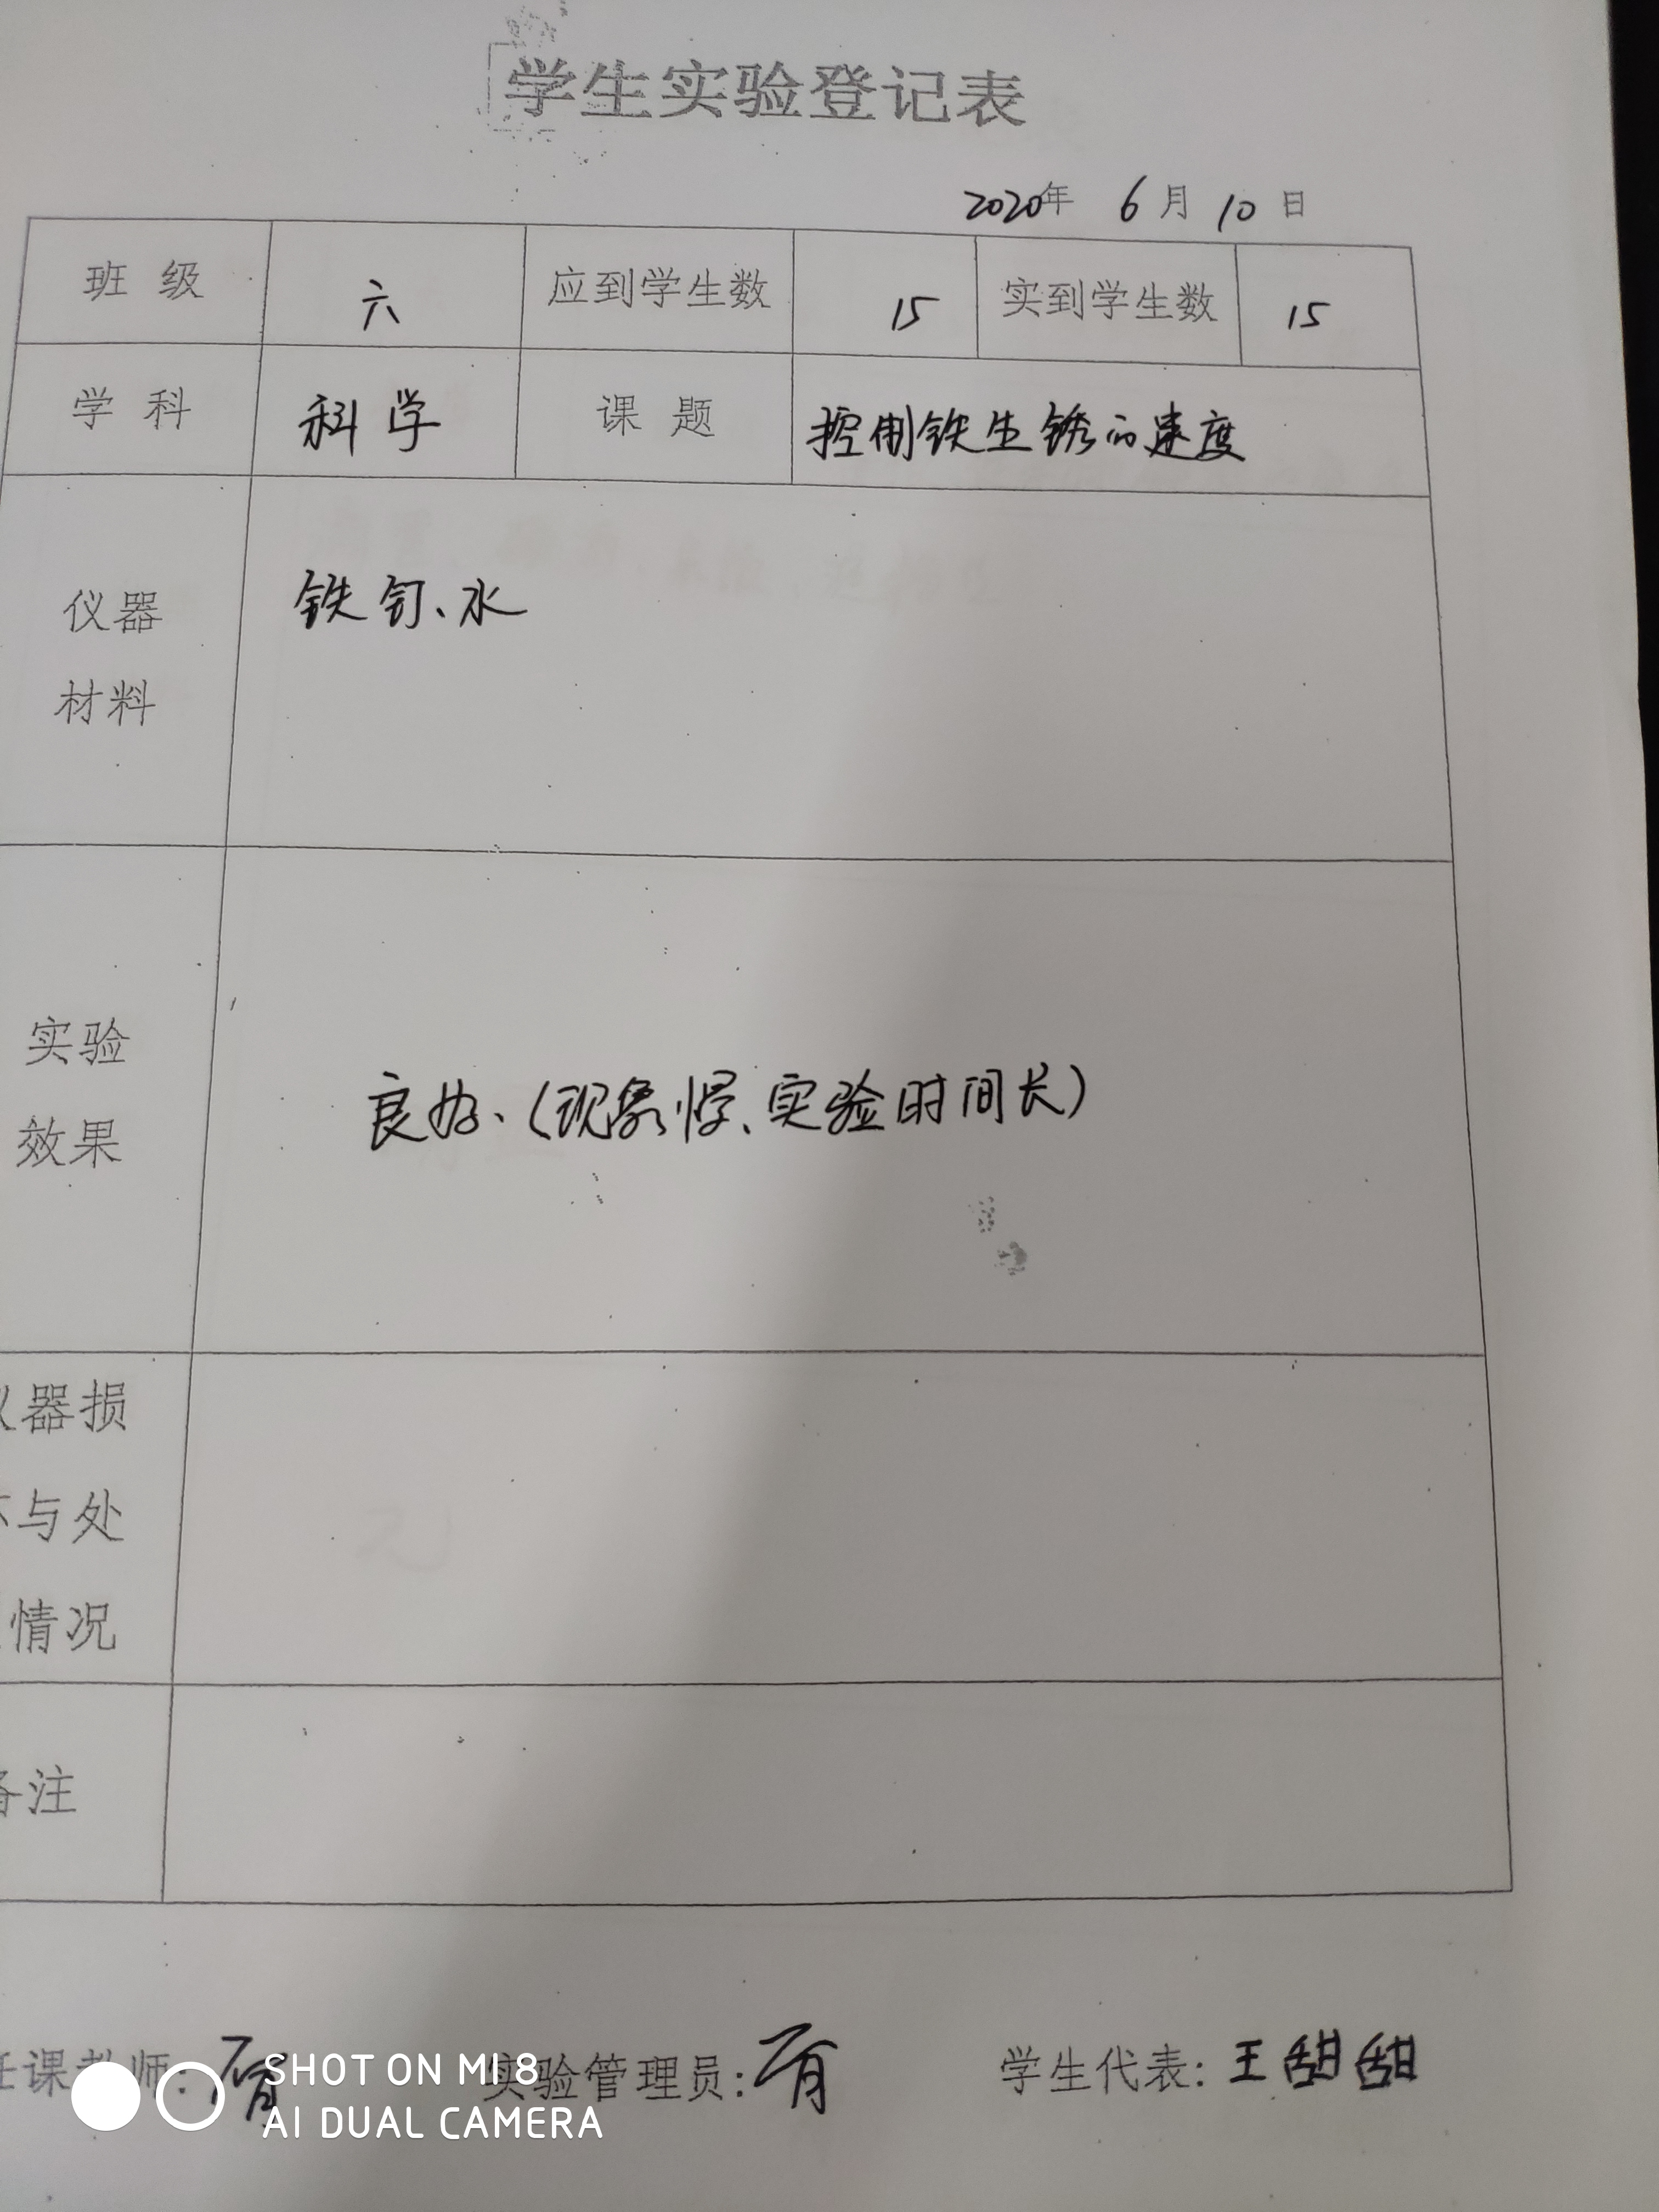 学生实验登记表
2020年 6月10日
班 级 六 应到学生数 15 实到学生数 15
学 科 科学 课 题 控制铁生锈的速度
仪器
材料
铁钉、水
实验
效果
良好、(现象慢、实验时间长)
器损
与处
情况
注
课教师:
实验管理员:
学生代表: 王甜甜
SHOT ON MI 8
AI DUAL CAMERA